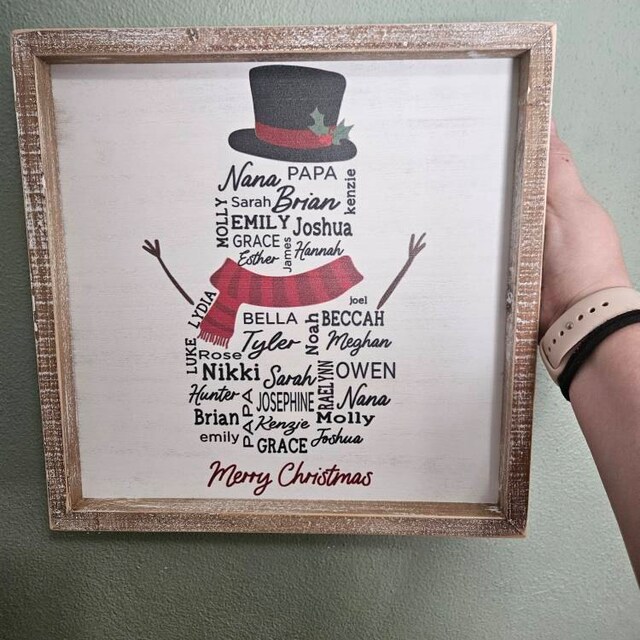 Nana PAPA
Sarah Brian kenzie
MOLLY
EMILY Joshua
GRACE
Esther James Hannah
joel
LYDIA BELLA Noah BECCAH
Tyler Meghan
LUKE
Rose
Nikki Sarah RAELYNN OWEN
Hunter JOSEPHINE Nana
PAPA
Brian Kenzie Molly
emily GRACE Joshua
Merry Christmas